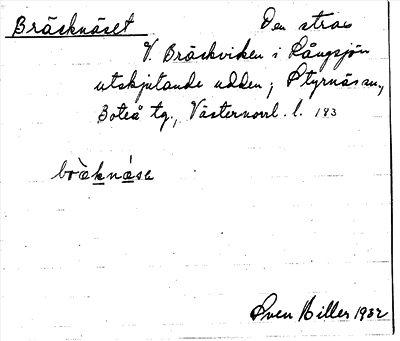 Bräcknäset Den strax
V. Bräckviken i Långsjön
utskjutande udden; Styrnäs sn,
Boteå tg., Västernorrl. l. 183
bràknása
Sven Hiller 1932